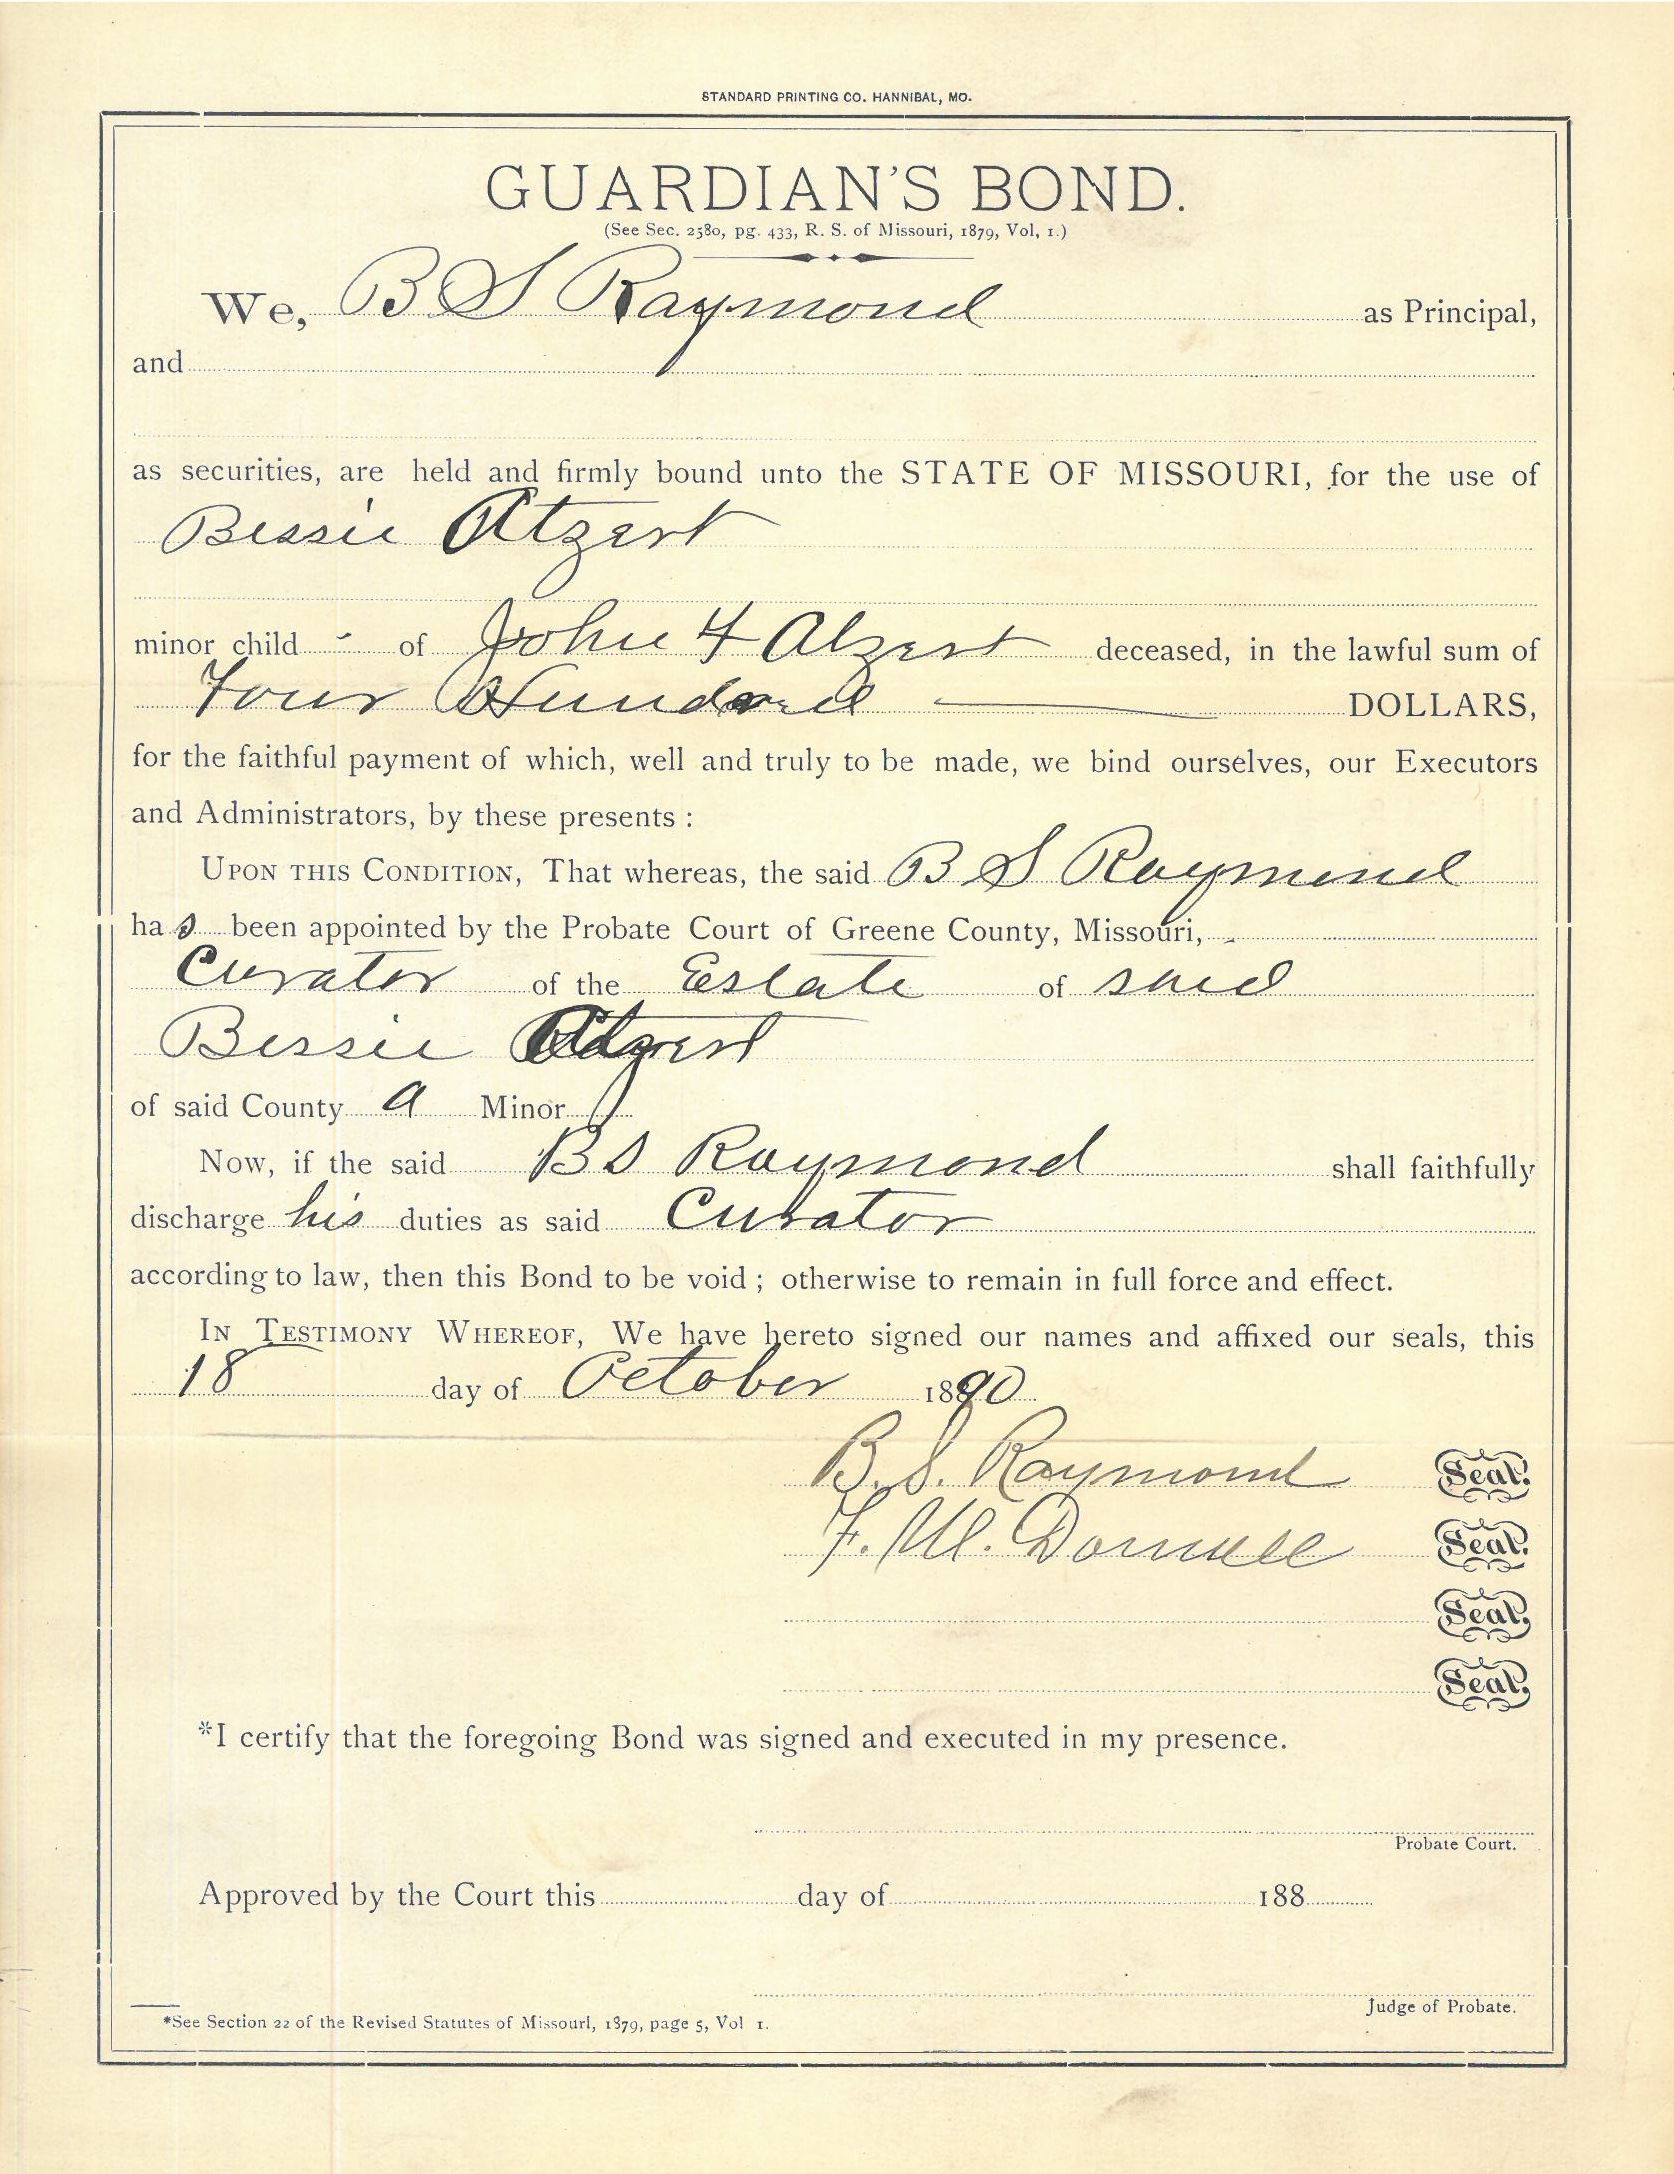 STANDARD PRINTING CO. HANNIBAL, MO.
GUARDIAN'S BOND.
(See Sec. 2580, pg. 433, R. S. of Missouri, 1879, Vol, 1.)
We, B S Raymond as Principal,
and
as securities, are held and firmly bound unto the STATE OF MISSOURI, for the use of
Bessie Atzert
minor child - of John F Atzert deceased, in the lawful sum of
Four Hundred DOLLARS,
for the faithful payment of which, well and truly to be made, we bind ourselves, our Executors
and Administrators, by these presents :
UPON THIS CONDITION, That whereas, the said B S Raymond
has been appointed by the Probate Court of Greene County, Missouri,
Curator of the Estate of said
Bessie Atzert
of said County a Minor
Now, if the said B S Raymond shall faithfully
discharge his duties as said Curator
according to law, then this Bond to be void ; otherwise to remain in full force and effect.
IN TESTIMONY WHEREOF, We have hereto signed our names and affixed our seals, this
18 day of October 1890
B. S. Raymond Seal.
F. M. Donnell Seal.
Seal.
Seal.
*I certify that the foregoing Bond was signed and executed in my presence.
Probate Court.
Approved by the Court this day of 188
Judge of Probate.
*See Section 22 of the Revised Statutes of Missouri, 1879, page 5, Vol 1.